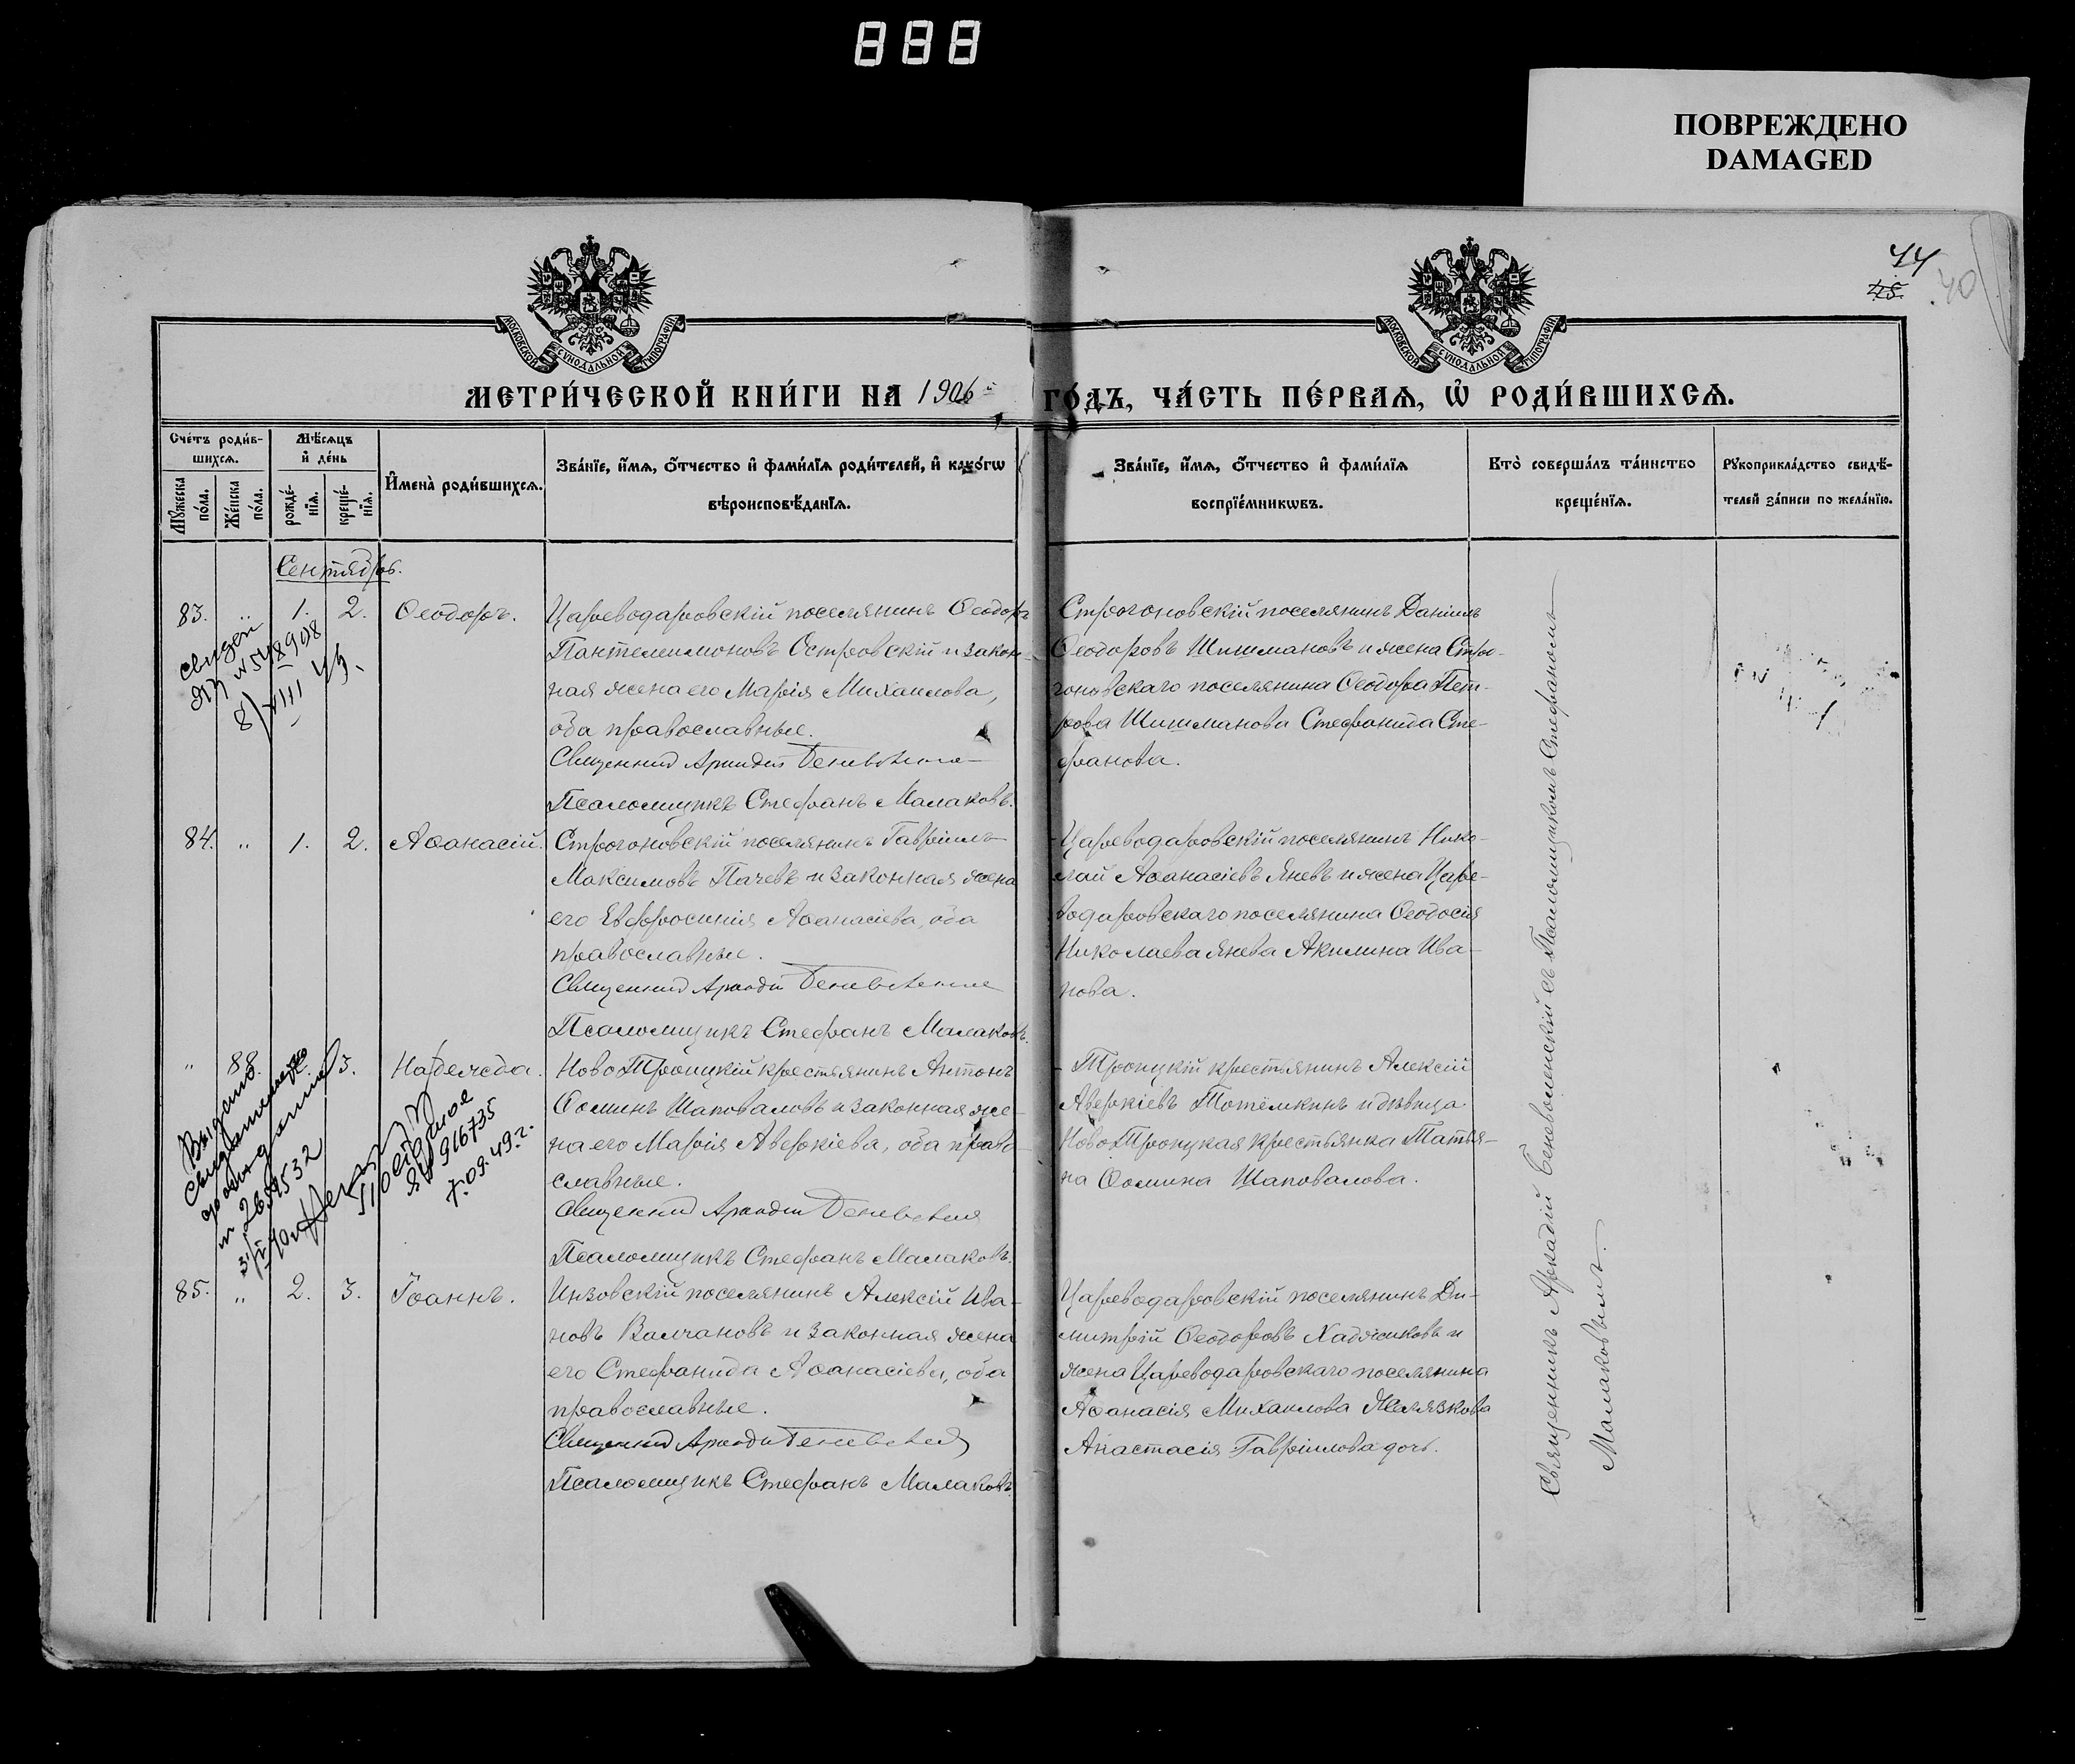 888
ПОВРЕЖДЕНО
DAMAGED
44
45.
40
МОСКОВСКОЙ СУНОДАЛЬНОЙ ТИПОГРАФІИ
МОСКОВСКОЙ СУНОДАЛЬНОЙ ТИПОГРАФІИ
МЕТРИ́ЧЕСКОЙ КНИ́ГИ НА 1906й ГО́ДЪ, ЧА́СТЬ ПЕ́РВАѦ, Ѡ҆ РОДИ́ВШИХСѦ.
Сче́тъ роди́в-
шихсѧ.
Мꙋжеска по́ла.
Же́нска по́ла.
Мѣ́сѧцъ
и҆ де́нь
рожде́-
нїѧ.
креще́-
нїѧ.
И҆мена̀ роди́вшихсѧ.
Зва́нїе, и҆́мѧ, ѻ҆́тчество и҆ фами́лїѧ роди́телей, и҆ како́гѡ
вѣроисповѣ́данїѧ.
Зва́нїе, и҆́мѧ, ѻ҆́тчество и҆ фами́лїѧ
воспрїе́мникѡвъ.
Кто̀ соверша́лъ та́инство
креще́нїѧ.
Рꙋкоприкла́дство свидѣ́-
телей за́писи по жела́нїю.
Сентябрь.
83. „ 1. 2. Ѳеодоръ.
Цареводаровскій поселянинъ Ѳеодоръ
Пантелеимоновъ Островскій и закон-
ная жена его Марія Михаилова,
оба православные.
Священник Аркадій Беневоленскій
Псаломщикъ Стефанъ Малаковъ.
Строгоновскій поселянинъ Даніилъ
Ѳеодоровъ Шишмановъ и жена Стро-
гоновскаго поселянина Ѳеодора Пет-
рова Шишманова Стефанида Сте-
фанова.
84. „ 1. 2. Аѳанасій.
Строгоновскій поселянинъ Гавріилъ
Максимовъ Пачевъ и законная жена
его Евфросинія Аѳанасіева, оба
православные.
Священник Аркадій Беневоленскій
Псаломщикъ Стефанъ Малаковъ.
Цареводаровскій поселянинъ Нико-
лай Аѳанасіевъ Яневъ и жена Царе-
водаровскаго поселянина Ѳеодосія
Николаева Янева Акилина Ива-
нова.
„ 88. 3. Надежда.
Выдано
свидетельство
2659532
повторное
916735
7.09.49г.
НовоТроицкій крестьянинъ Антонъ
Ѳоминъ Шаповаловъ и законная же-
на его Марія Аверкіева, оба право-
славные.
Священник Аркадій Беневоленскій
Псаломщикъ Стефанъ Малаковъ.
Троицкій крестьянинъ Алексій
Аверкіевъ Потёмкинъ и дѣвица
НовоТроицкая крестьянка Татья-
на Ѳомина Шаповалова.
85. „ 2. 3. Іоаннъ.
Инзовскій поселянинъ Алексій Ива-
новъ Волчановъ и законная жена
его Стефанида Аѳанасіева, оба
православные.
Священник Аркадій Беневоленскій
Псаломщикъ Стефанъ Малаковъ.
Цареводаровскій поселянинъ Ди-
митрій Ѳеодоровъ Хаджиковъ и
жена Цареводаровскаго поселянина
Аѳанасія Михаилова Желязкова
Анастасія Гавріилова дочь.
Священникъ Аркадій Беневоленскій съ Псаломщикомъ Стефаномъ
Малаковымъ.